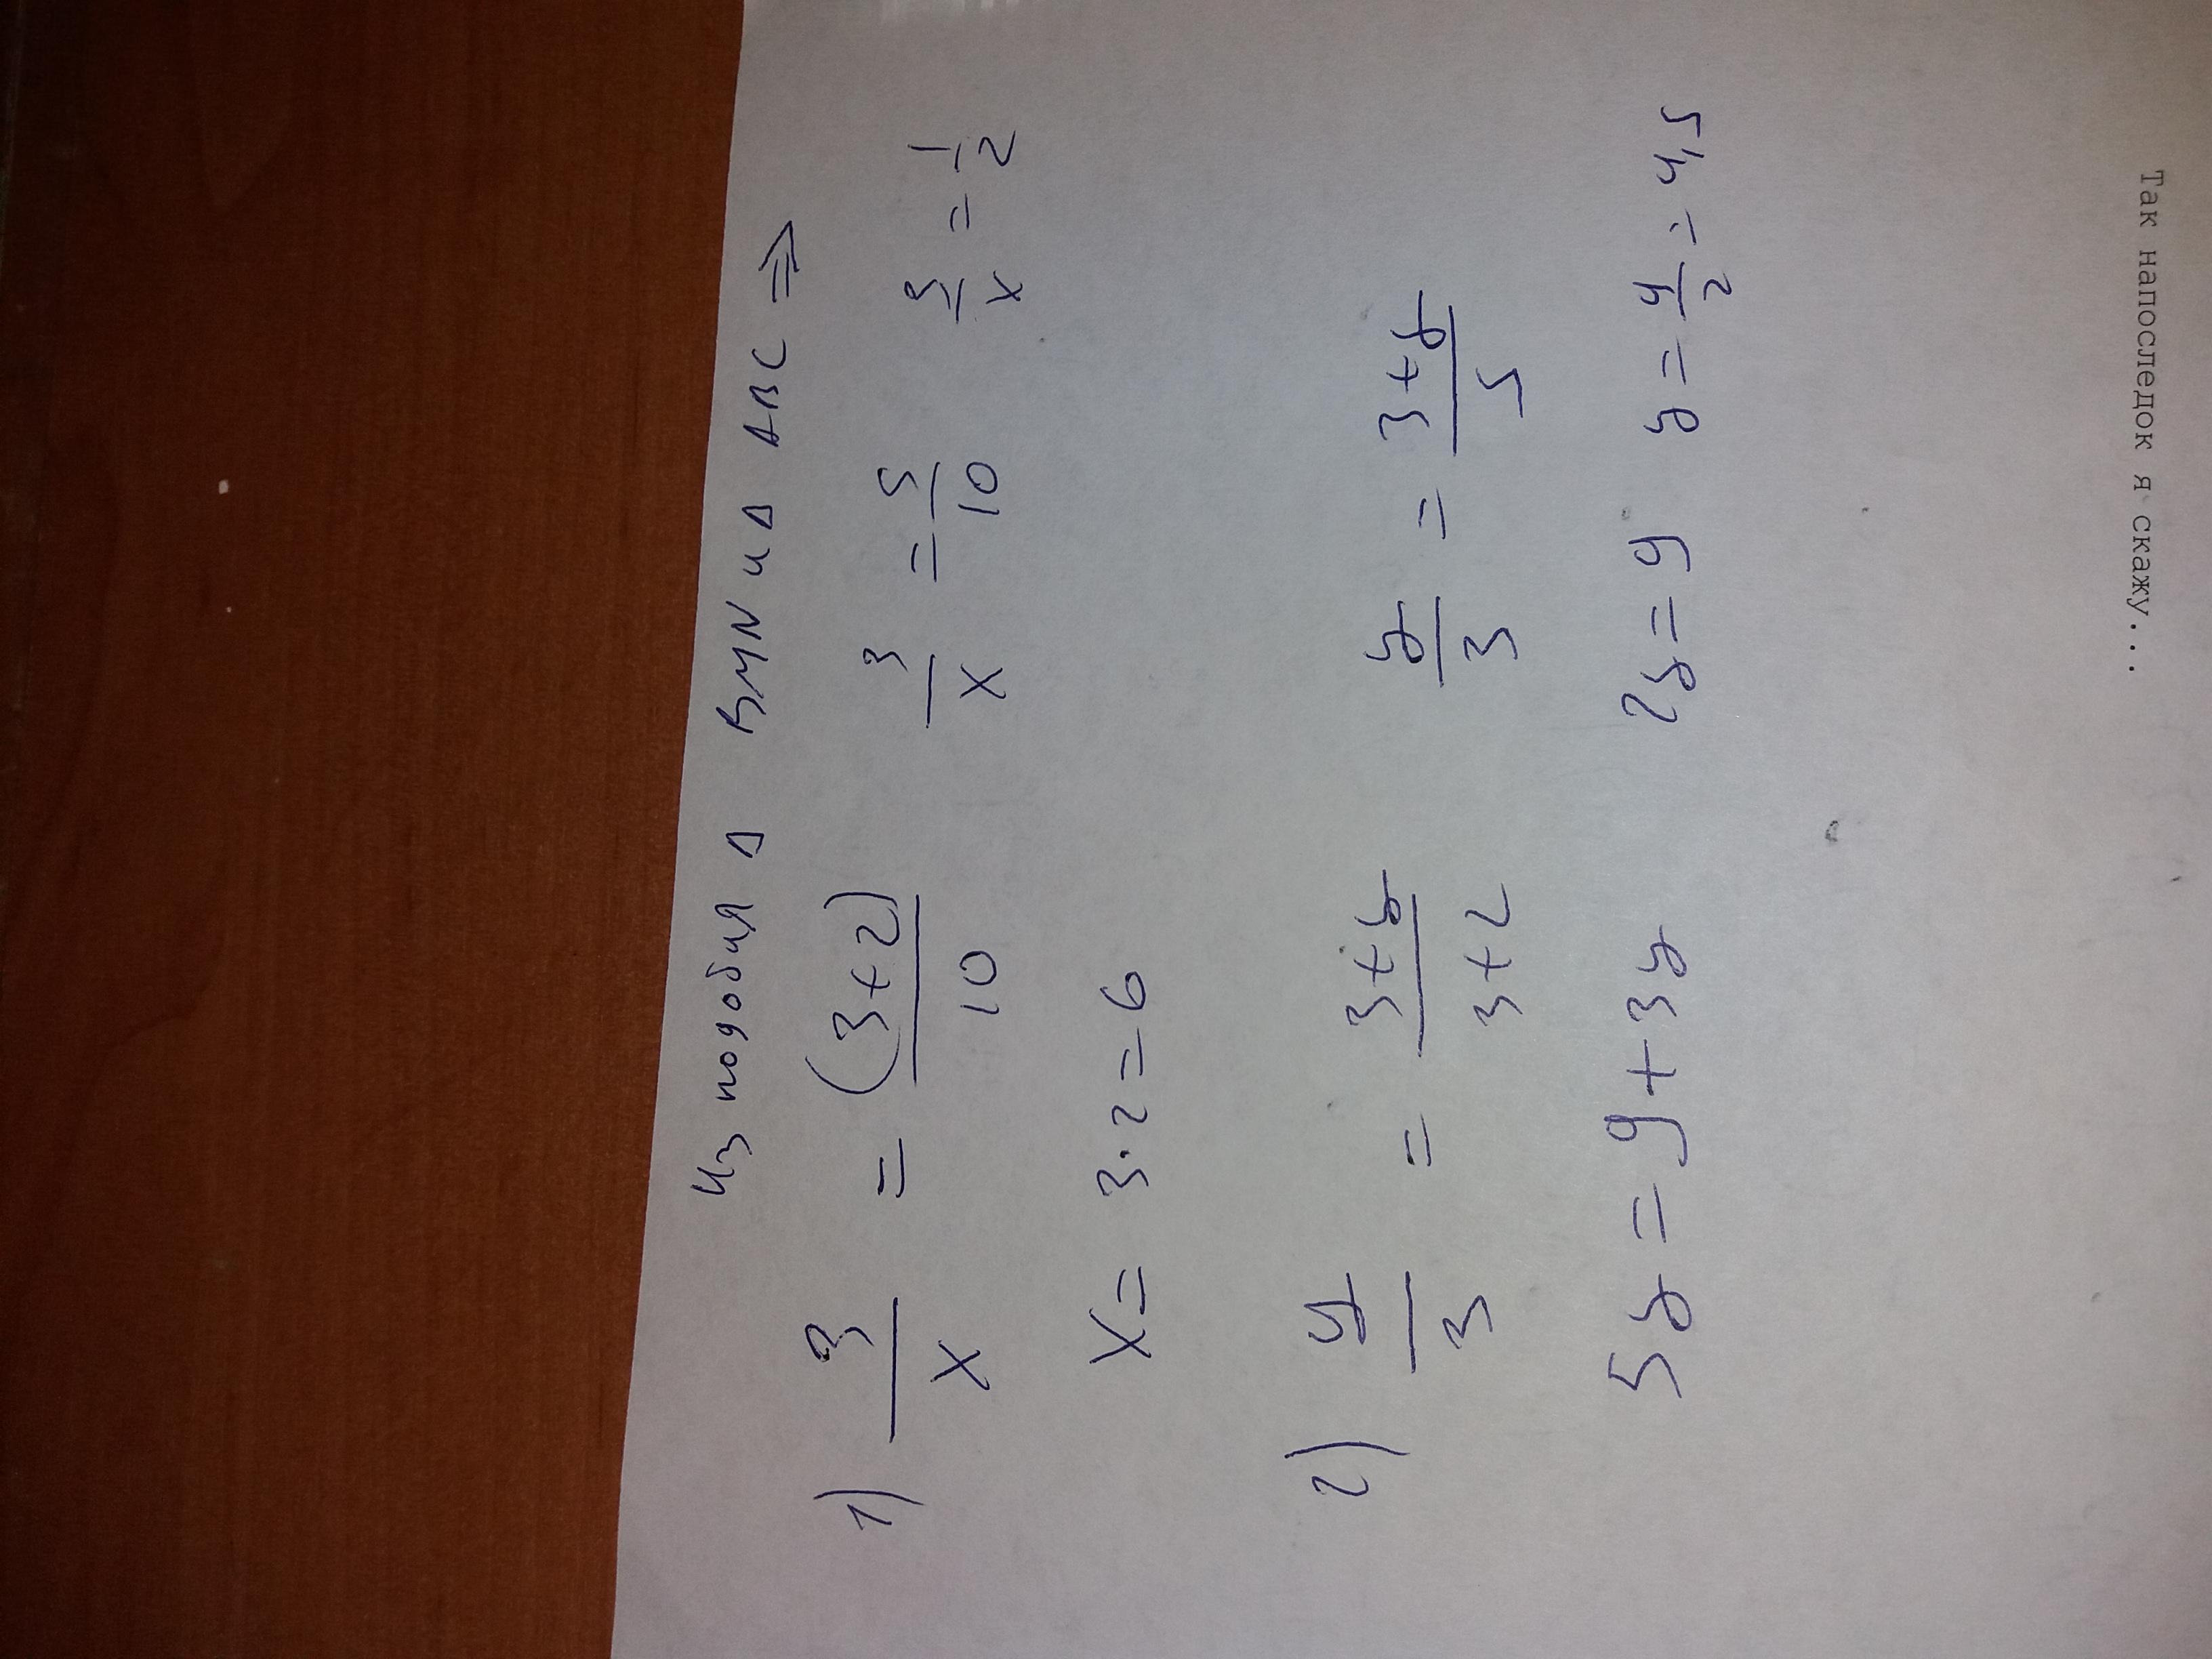 Из подобия Δ BMN и Δ ABC ⇒
1) 3/x = (3+2)/10 3/x = 5/10 3/x = 1/2
x = 3·2 = 6
2) y/3 = 3+y/3+2 y/3 = 3+y/5
5y = 9+3y 2y = 9 y = 9/2 = 4,5
Так напоследок я скажу...